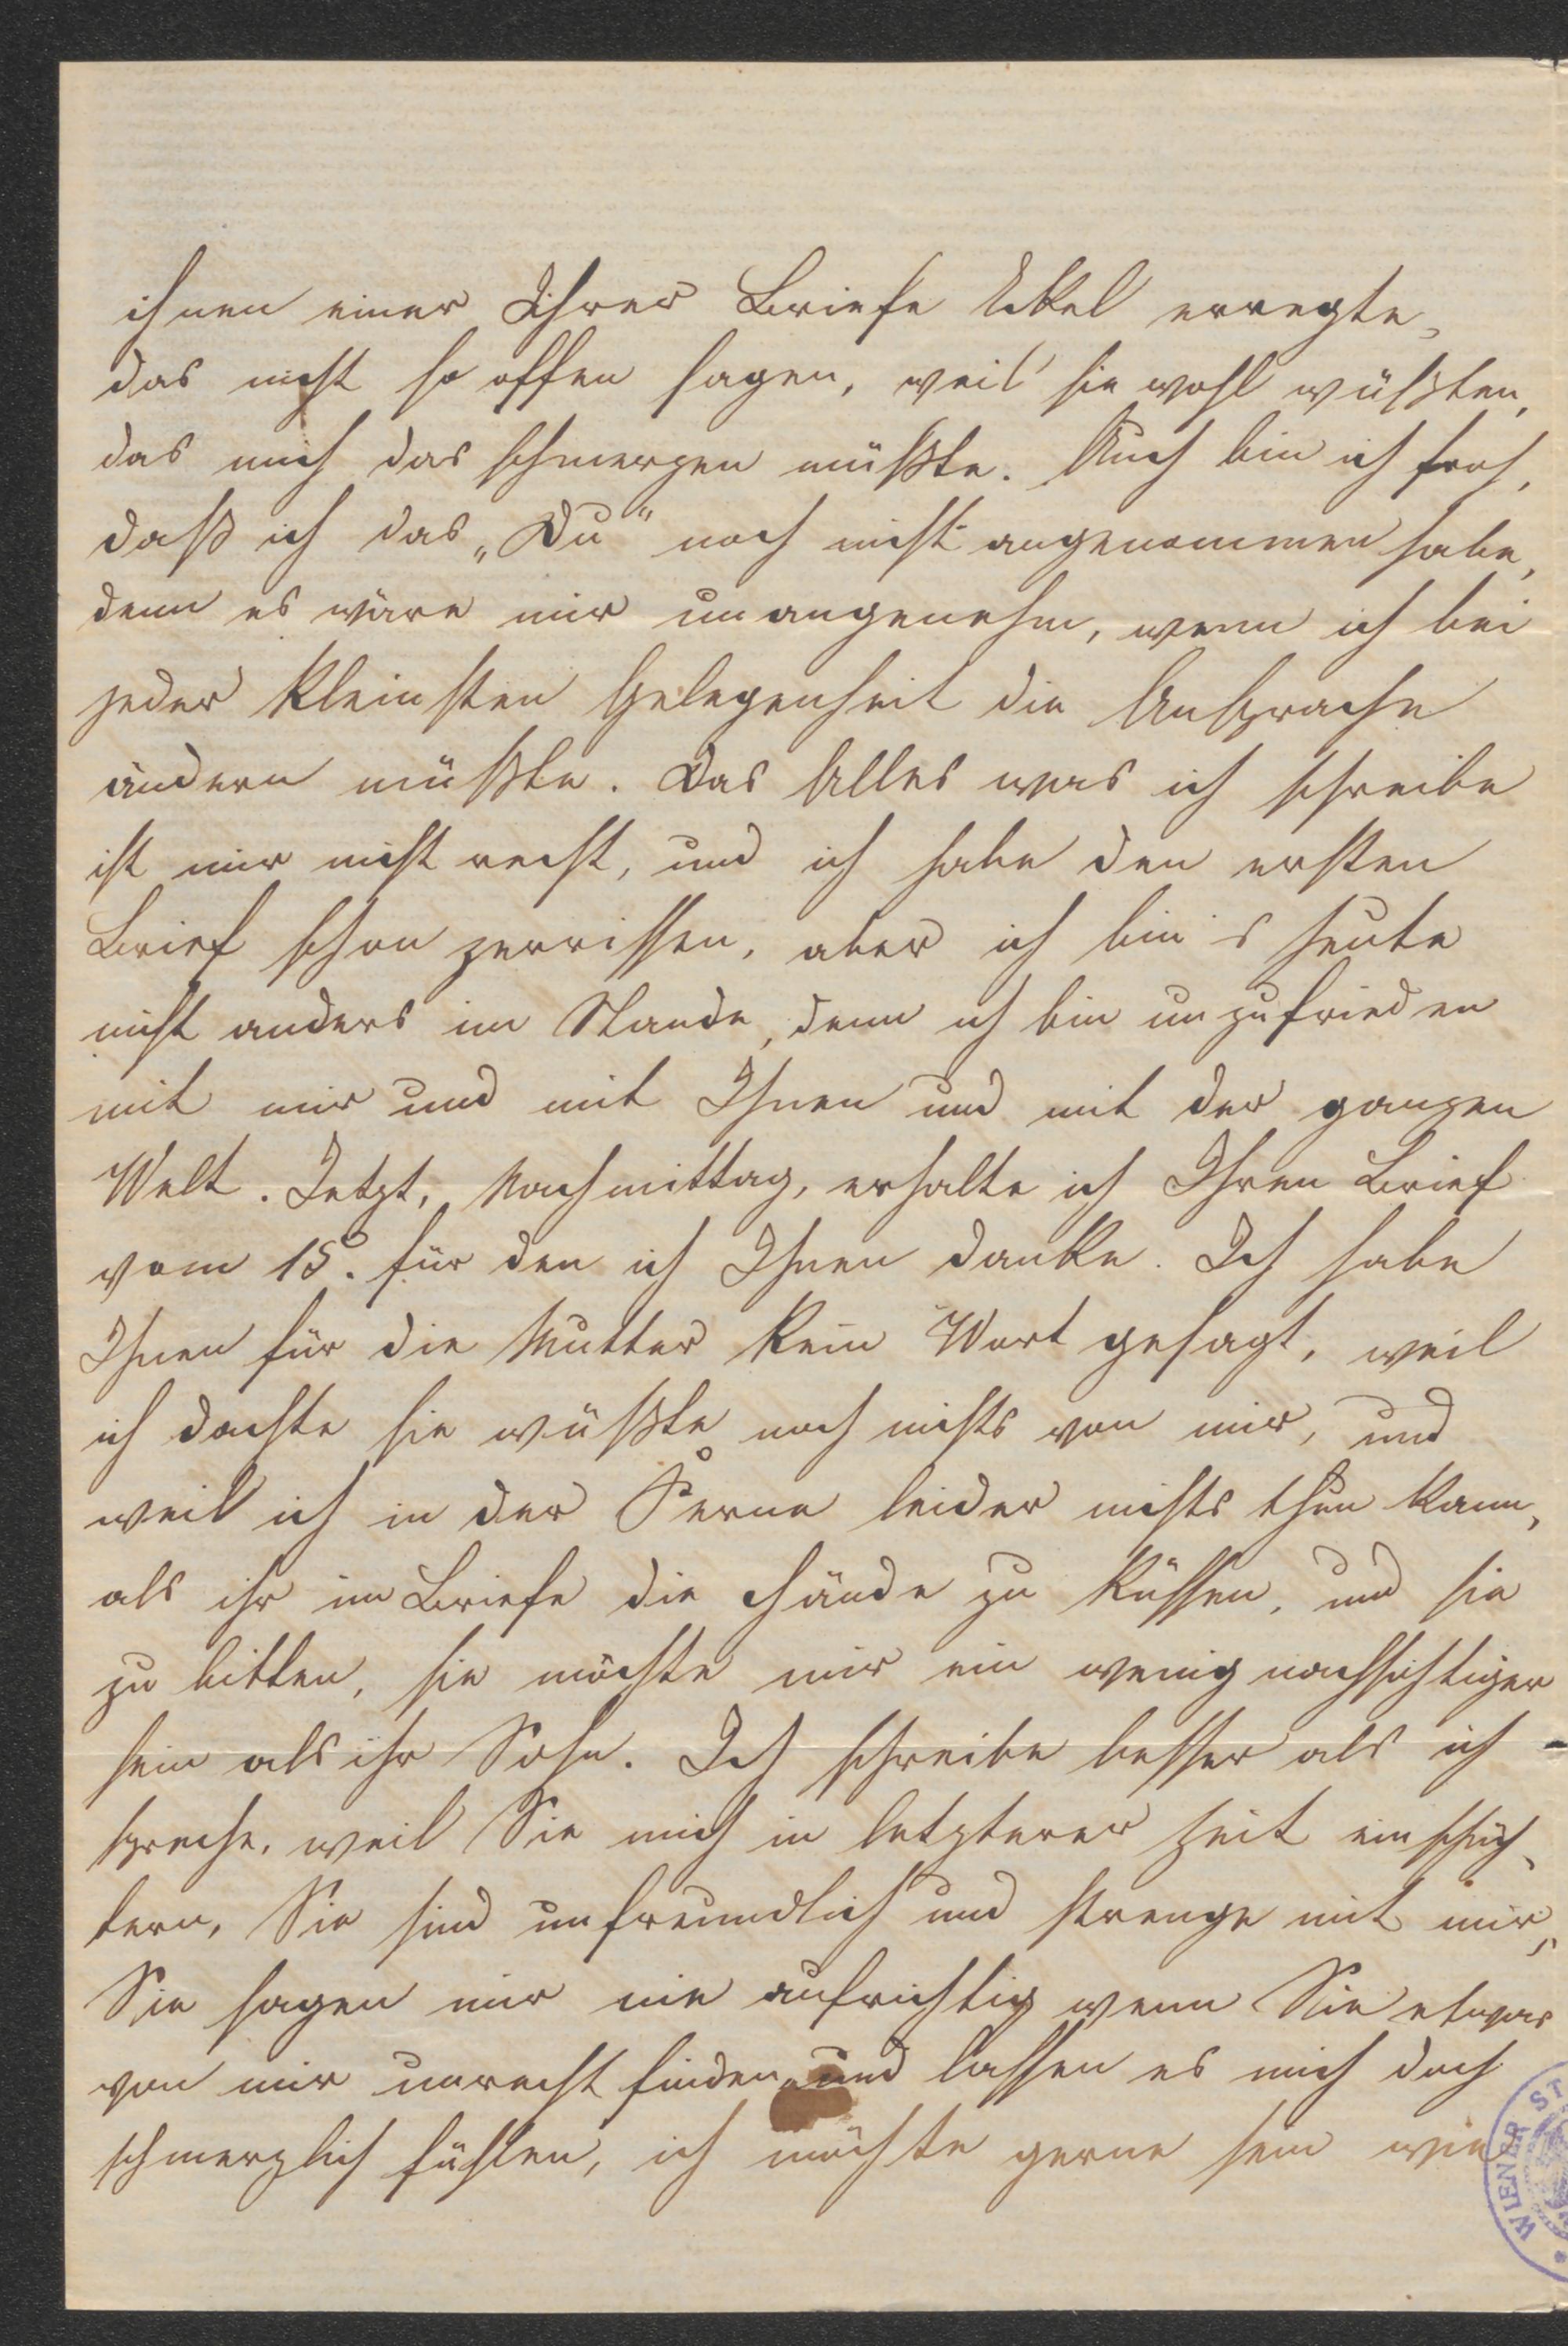 ihnen einer Ihrer Briefe Ekel erregte,
das nicht so offen sagen, weil sie wohl wüßten,
das mich das schmerzen müßte. Auch bin ich froh,
daß ich das „Du“ noch nicht angenommen habe,
denn es wäre mir unangenehm, wenn ich bei
jeder kleinsten Gelegenheit die Ansprache
ändern müßte. Das Alles was ich schreibe
ist mir nicht recht, und ich habe den ersten
Brief schon zerrissen, aber ich bin's heute
nicht anders im Stande, denn ich bin unzufrieden
mit mir und mit Ihnen und mit der ganzen
Welt. Jetzt, Nachmittag, erhalte ich Ihren Brief
vom 15. für den ich Ihnen danke. Ich habe
Ihnen für die Mutter kein Wort gesagt, weil
ich dachte sie wüßte noch nichts von mir, und
weil ich in der Ferne leider nichts thun kann,
als ihr im Briefe die Hände zu küssen, und sie
zu bitten, sie möchte mir ein wenig nachsichtiger
sein als ihr Sohn. Ich schreibe besser als ich
spreche, weil Sie mich in letzterer Zeit einschüch-
tern, Sie sind unfreundlich und strenge mit mir,
Sie sagen mir nie aufrichtig wenn Sie etwas
von mir unrecht finden, und lassen es mich doch
schmerzlich fühlen, ich möchte gerne sein wie
WIENER ST